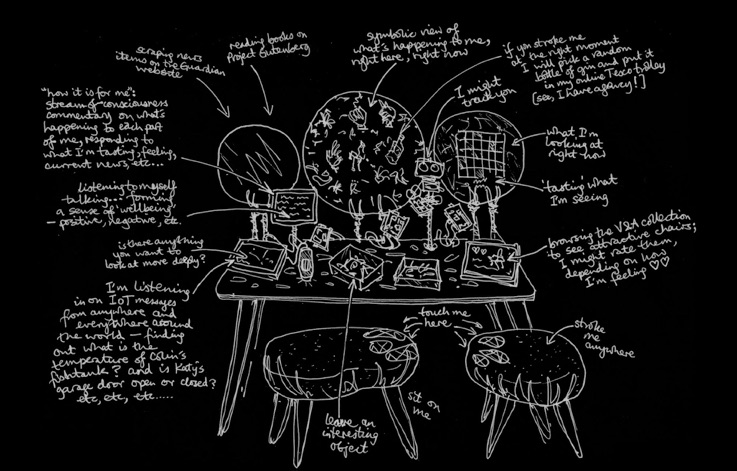 scraping news
items on the Guardian
website
reading books on
Project Gutenberg
symbolic view of
what's happening to me,
right here, right now
if you stroke me
at the right moment
I will pick a random
bottle of gin and put it
in my online Tesco trolley
[see, I have agency!]
I might
track you
"how it is for me":
stream of consciousness
commentary on what's
happening to each part
of me, responding to
what I'm tasting, feeling,
current news, etc...
what I'm
looking at
right now
'tasting' what
I'm seeing
listening to myself
talking... forming
a sense of 'wellbeing'
- positive, negative, etc.
is there anything
you want to
look at more deeply?
browsing the V&A collection
to see attractive chairs;
I might rate them,
depending on how
I'm feeling ♡♡
I'm listening
in on IoT messages
from anywhere and
everywhere around
the world – finding
out what is the
temperature of Colin's
fishtank? and is Katy's
garage door open or closed?
etc, etc, etc.....
touch me
here
stroke
me
anywhere
sit on
me
leave an
interesting
object